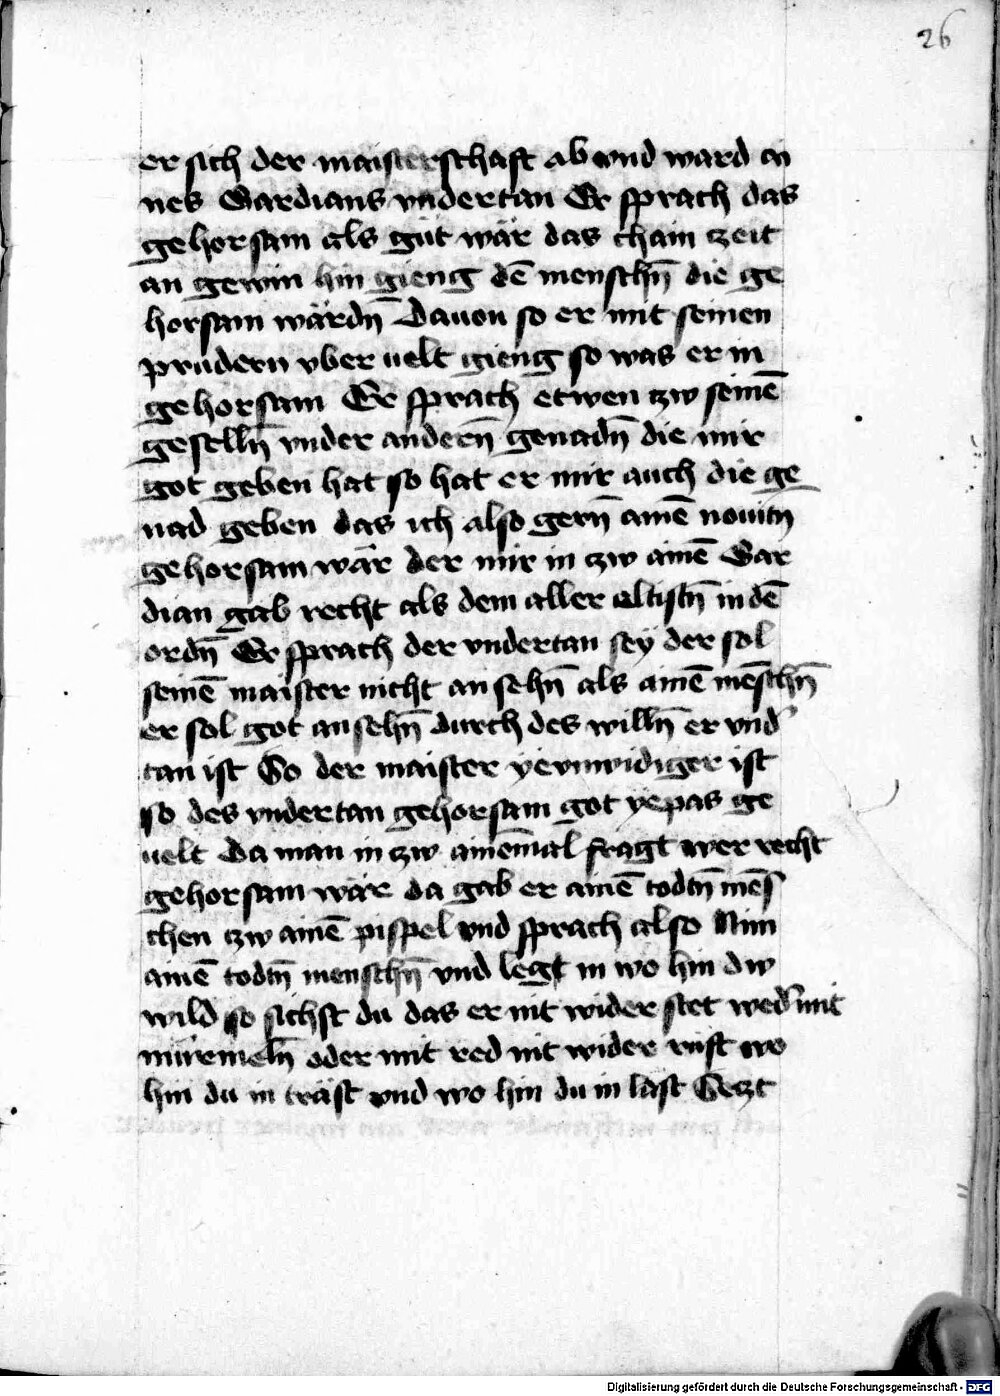 26
er sich der maisterschaft ab vnd ward ai
nes Gardians vndertan Er sprach das
gehorsam als güt wär das chain zeit
an gewin hin gieng dē menschn̄ die ge
horsam wärdn̄ Dauon so er mit seinen
prüdern vber uelt gieng so was er in
gehorsam Er sprach etwen zw seinē
geselln̄ vnder andern̄ genadn̄ die mir
got geben hat so hat er mir auch die ge
nad geben das ich also gern̄ ainē nouitzn
gehorsam wär der mir in zw ainē Gar
dian gab recht als dem aller eltistn̄ in dē
ordn̄ Er sprach der vndertan sey der sol
seinē maister nicht an sehn̄ als ainē mēschn̄
er sol got an sehn̄ durch des willn̄ er vnd'
tan ist So der maister ye vnwidiger ist
so des vndertan gehorsam got ye pas ge
uelt Da man in zw ainēmal fragt wer recht
gehorsam wär da gab er ainē todtn̄ mēs
chen zw ainē pispel vnd sprach also Nim
ainē todtn̄ menschn̄ vnd legt in wo hin dw
wild so sichst du das er nit wider stet wed' mit
mürmeln̄ oder mit red nit wider rüft wo
hin du in träst vnd wo hin du in läst Setzt
Digitalisierung gefördert durch die Deutsche Forschungsgemeinschaft - DFG